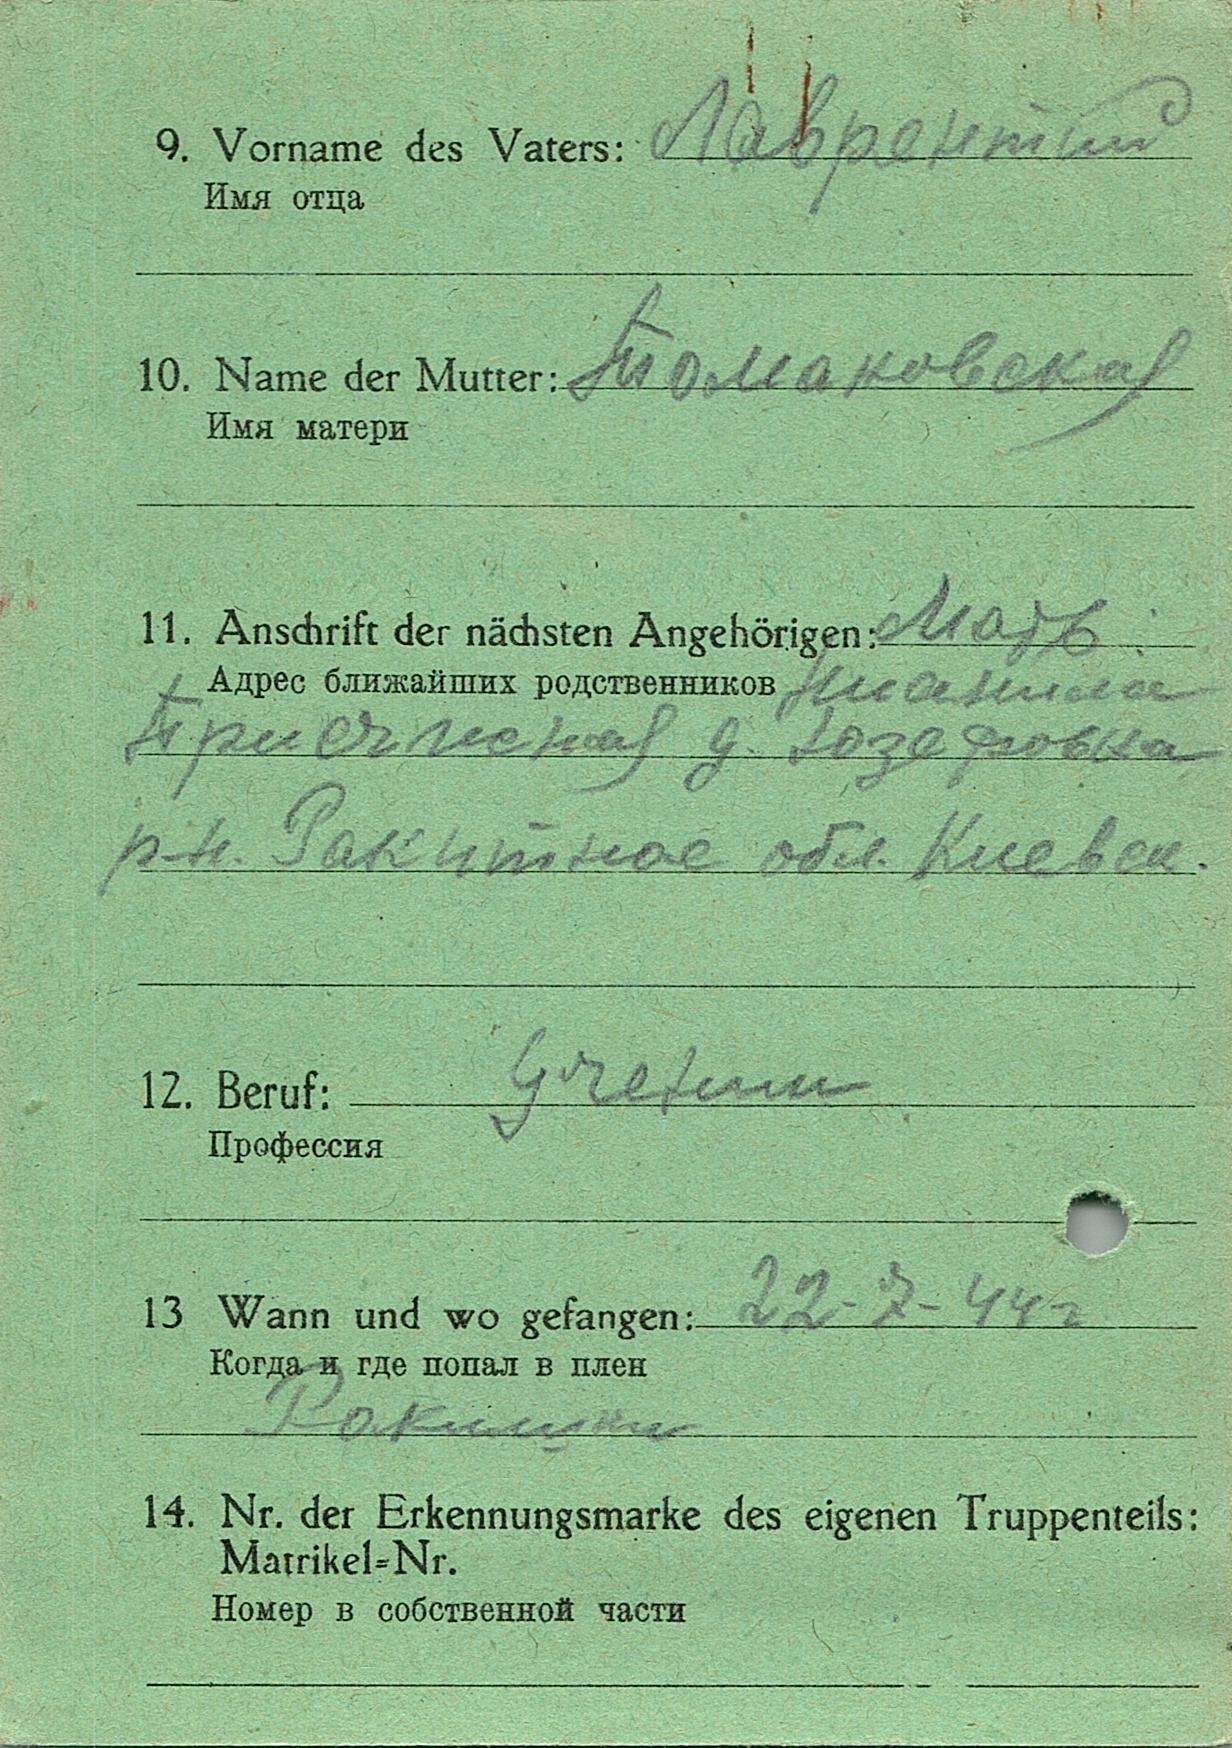 9. Vorname des Vaters: Лаврентий
Имя отца
10. Name der Mutter: Томаковская
Имя матери
11. Anschrift der nächsten Angehörigen: Мать:
Адрес ближайших родственников
д. Юзефовка
р-н. Ракитное обл. Киевск.
12. Beruf:
Профессия
13 Wann und wo gefangen: 22-7-44г
Когда и где попал в плен
14. Nr. der Erkennungsmarke des eigenen Truppenteils:
Matrikel=Nr.
Номер в собственной части